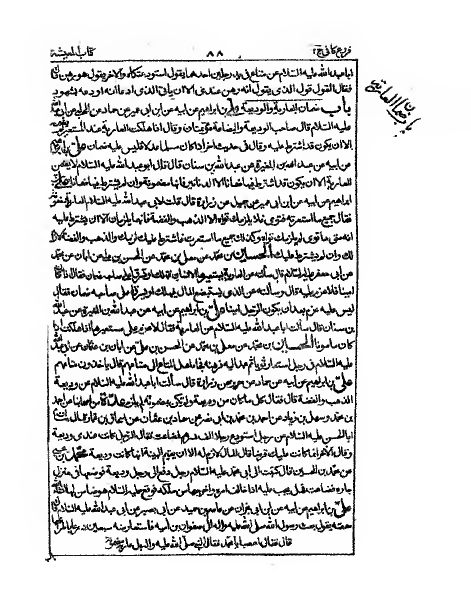 فروع كافى ج٢ ٨٨ كتاب المعيشة
ابا عبد الله عليه السلام عن متاع فى يد رجلين احدهما يقول استودعتكاه والاخر يقول هو رهن
فقال القول قول الذى يقول انه رهن عندى الا ان يأتى الذى ادعى انه اودعه بشهود
باب ضمان العارية والوديعة على بن ابراهيم عن ابيه عن ابن ابى عمير عن حماد عن الحلبى عن ابى عبد الله
عليه السلام قال صاحب الوديعة والبضاعة مؤتمنان وقال اذا هلكت العارية عند المستعير
الا ان يكون قد اشترط عليه وقال فى حديث اخر اذا كان مسلما عدلا فليس عليه ضمان
عن ابيه عن عبد الله بن المغيرة عن عبد الله بن سنان قال قال ابو عبد الله عليه السلام لا
العارية الا ان يكون قد اشترط فيها ضمانا الا الدنانير فانها مضمونة وان لم يشترط فيها ضمانا على بن
ابراهيم عن ابيه عن ابن ابى عمير عن جميل عن زرارة قال قلت لابى عبد الله عليه السلام العارية مضمونة
فقال جميع ما استعرته فتوى فلا يلزمك تواه الا الذهب والفضة فانهما يلزمان الا ان يشترط عليه
انه متى ما توى لم يلزمك تواه وكذلك جميع ما استعرت فاشترط عليك لزمك والذهب والفضة لازم
لك وان لم يشترط عليك الحسين بن محمد عن معلى بن محمد عن الحسن بن على عن ابان عن محمد
عن ابى جعفر عليه السلام قال سألته عن العارية
امينا فلا غرم عليه قال وسألته عن الذى يستبضع المال فيهلك او يسرق أعلى صاحبه ضمان فقال
ليس عليه غرم بعد ان يكون الرجل امينا على بن ابراهيم عن ابيه عن عبد الله بن المغيرة عن عبد الله
بن سنان قال سألت ابا عبد الله عليه السلام عن العارية فقال لا غرم على مستعير عارية اذا هلكت اذا
كان مأمونا الحسين بن محمد عن معلى بن محمد عن الحسن بن على عن ابان بن عثمان عن ابى عبد الله
عليه السلام فى رجل استعار ثوبا ثم عمد اليه فرهنه فجاء اهل المتاع الى متاعهم قال يأخذون متاعهم
على بن ابراهيم عن ابيه عن حماد عن حريز عن زرارة قال سألت ابا عبد الله عليه السلام عن وديعة
الذهب والفضة قال فقال كل ما كان من وديعة ولم تكن مضمونة لا يلزم عدة من اصحابنا عن احمد
بن محمد وسهل بن زياد عن احمد بن محمد بن ابى نصر عن حماد بن عثمان عن اسحاق بن عمار قال سألت
ابا الحسن عليه السلام عن رجل استودع رجلا الف درهم فضاعت فقال الرجل كانت عندى وديعة
وقال الاخر انما كانت عليك قرضا قال المال لازم له الا ان يقيم البينة انها كانت وديعة محمد بن يحيى
عن محمد بن الحسين قال كتبت الى ابى محمد عليه السلام رجل دفع الى رجل وديعة فوضعها فى منزل
جاره فضاعت فهل يجب عليه اذا خالف امره واخرجها من ملكه فوقع عليه السلام هو ضامن لها
على بن ابراهيم عن ابيه عن ابن ابى نجران عن عاصم بن حميد عن ابى بصير عن ابى عبد الله عليه السلام قال
سمعته يقول بعث رسول الله صلى الله عليه واله الى صفوان بن امية فاستعار منه سبعين درعا
قال فقال اغصبا يا محمد فقال النبى صلى الله عليه واله بل عارية مضمونة